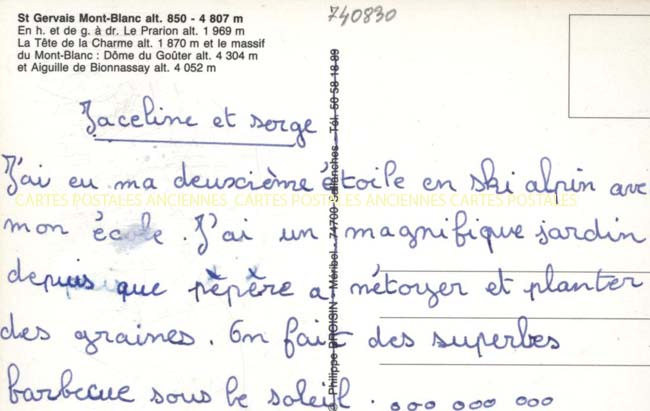 St Gervais Mont-Blanc alt. 850 - 4 807 m
En h. et de g. à dr. Le Prarion alt. 1 969 m
La Tête de la Charme alt. 1 870 m et le massif
du Mont-Blanc : Dôme du Goûter alt. 4 304 m
et Aiguille de Bionnassay alt. 4 052 m
740830
Jaceline et serge
J'ai eu ma deuxcième étoile en ski alpin avec
mon école. J'ai un magnifique jardin
depuis que pèpère a nétoyer et planter
des graines. On fait des superbes
barbecue sous le soleil. ooo ooo ooo
Philippe BROISIN - Méribel - 74700 Sallanches - Tél. 50 58 18 89
CARTES POSTALES ANCIENNES CARTES POSTALES ANCIENNES CARTES POSTALES